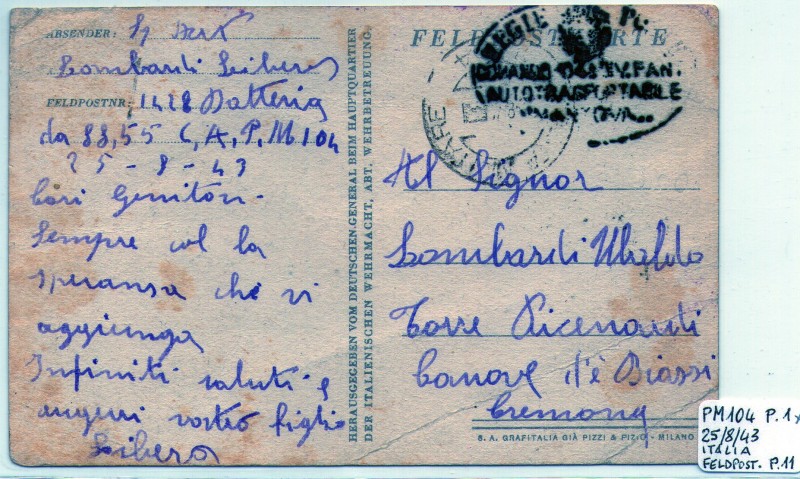 ABSENDER:
Lombardi Libero
FELDPOSTNR: 1428 Batteria
da 88,55 C, A, P, M 104
25-8-43
Cari Genitori
Sempre col la
speransa che vi
aggiunga
Infiniti saluti e
auguri vostro figlio
Libero
HERAUSGEGEBEN VOM DEUTSCHEN GENERAL BEIM HAUPTQUARTIER
DER ITALIENISCHEN WEHRMACHT, ABT. WEHRBETREUUNG.
FELDPOSTKARTE
COMANDO FAN.
AUTOTRASPORTABILE
MANTOVA
Al Signor
Lombardi Ubaldo
Torre Picenardi
Canove d'è Biazzi
Cremona
S. A. GRAFITALIA GIÀ PIZZI & PIZIO - MILANO
PM104 P.1
25/8/43
ITALIA
FELDPOST. P.11